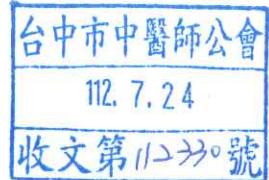 台中市中醫師公會
112. 7. 24
收文第112330號